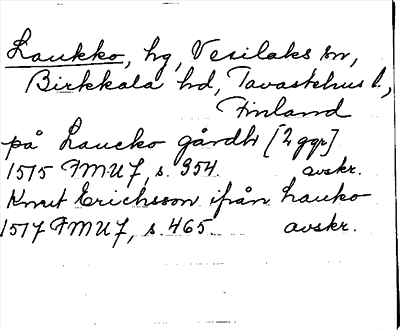 Laukko, hg, Vesilaks sn,
Birkkala hd, Tavastehus l.,
Finland
på Laucko gårdh [2 ggr]
1515 FMU 7, s. 354. avskr.
Knut Erichsson ifrån Lauko
1517 FMU 7, s. 465. avskr.